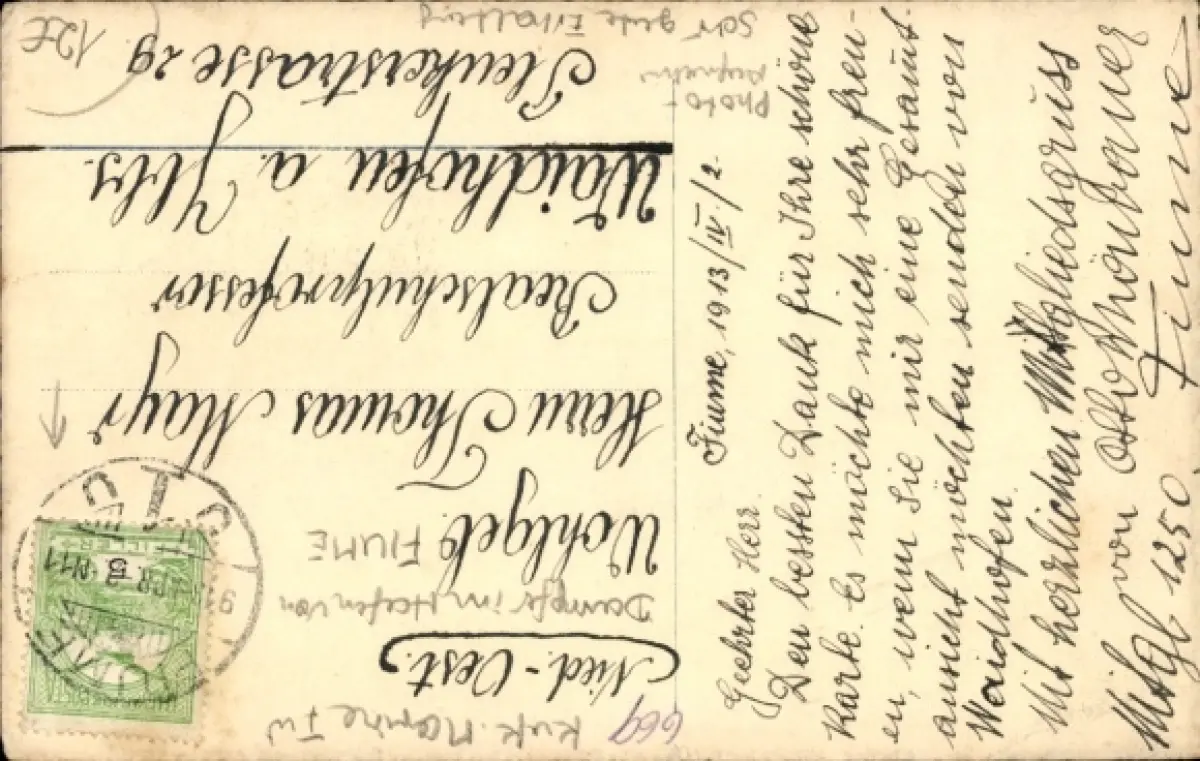 Fiume, 1913/IV/2.
Geehrter Herr.
Den besten Dank für Ihre schöne
Karte. Es möchte mich sehr freu-
en, wenn Sie mir eine Gesamt-
ansicht möchten senden von
Waidhofen.
Mit herzlichen Mitgliedsgruss
von Otto Schönbauer
Mitgl 1250 Fiume
Nied.-Oest.
Wohlgeb.
Herrn Thomas Mayr
Realschulprofessor
Waidhofen a. Ybbs.
Plenkerstrasse 29
669
KuK. Marine
Dampfer im Hafen von
FIUME
Photo-
Sehr gute Erhaltung
12€